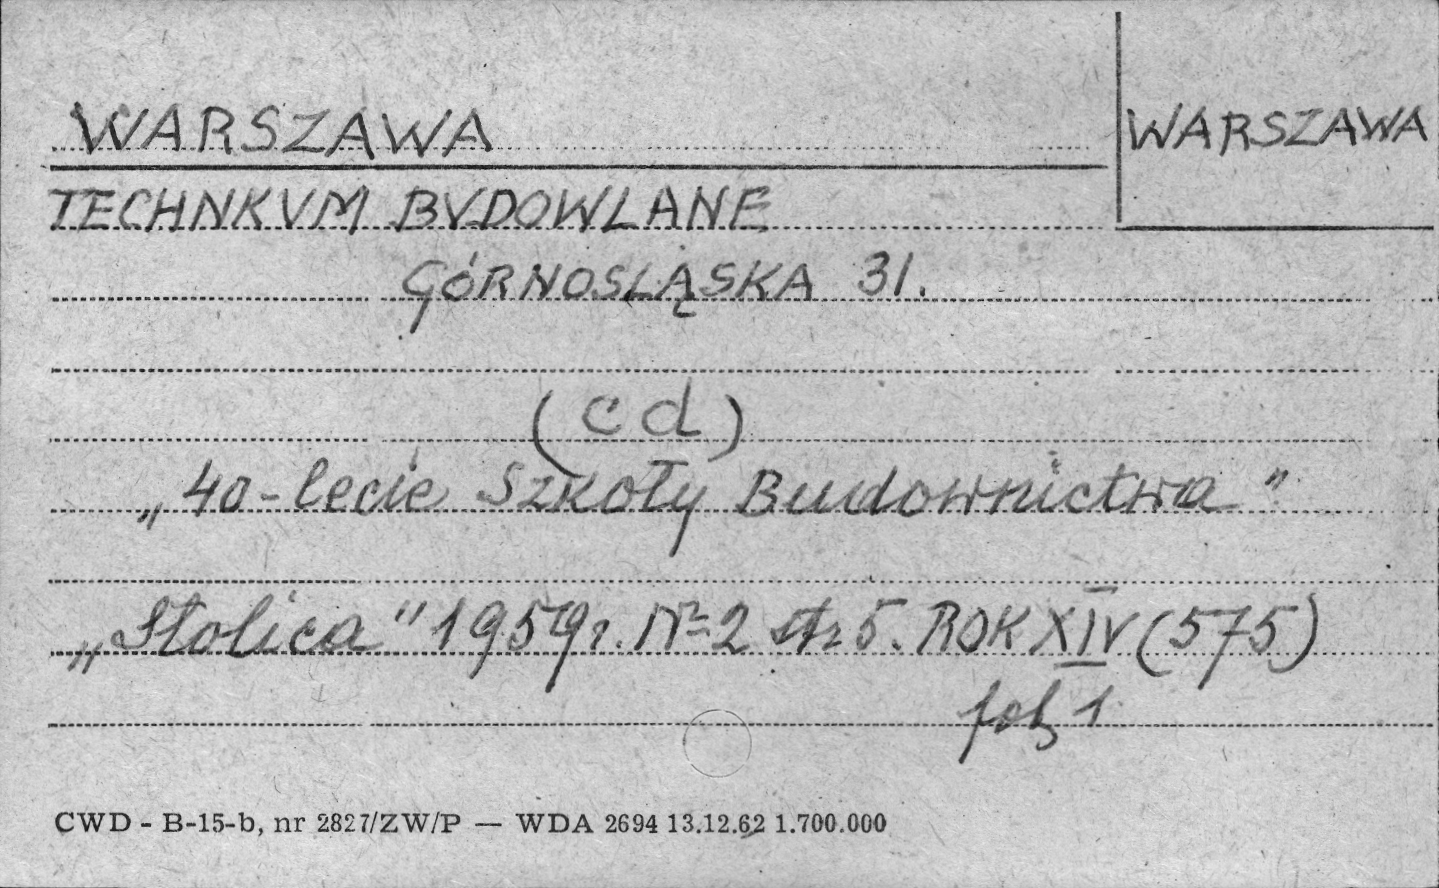 WARSZAWA
WARSZAWA
TECHNKUM BUDOWLANE
GÓRNOSLĄSKA 31.
(cd)
„40-lecie Szkoły Budownictwa”
„Stolica” 1959r. Nr 2 str 5. ROK XIV (575)
fot 1
CWD - B-15-b, nr 2827/ZW/P — WDA 2694 13.12.62 1.700.000